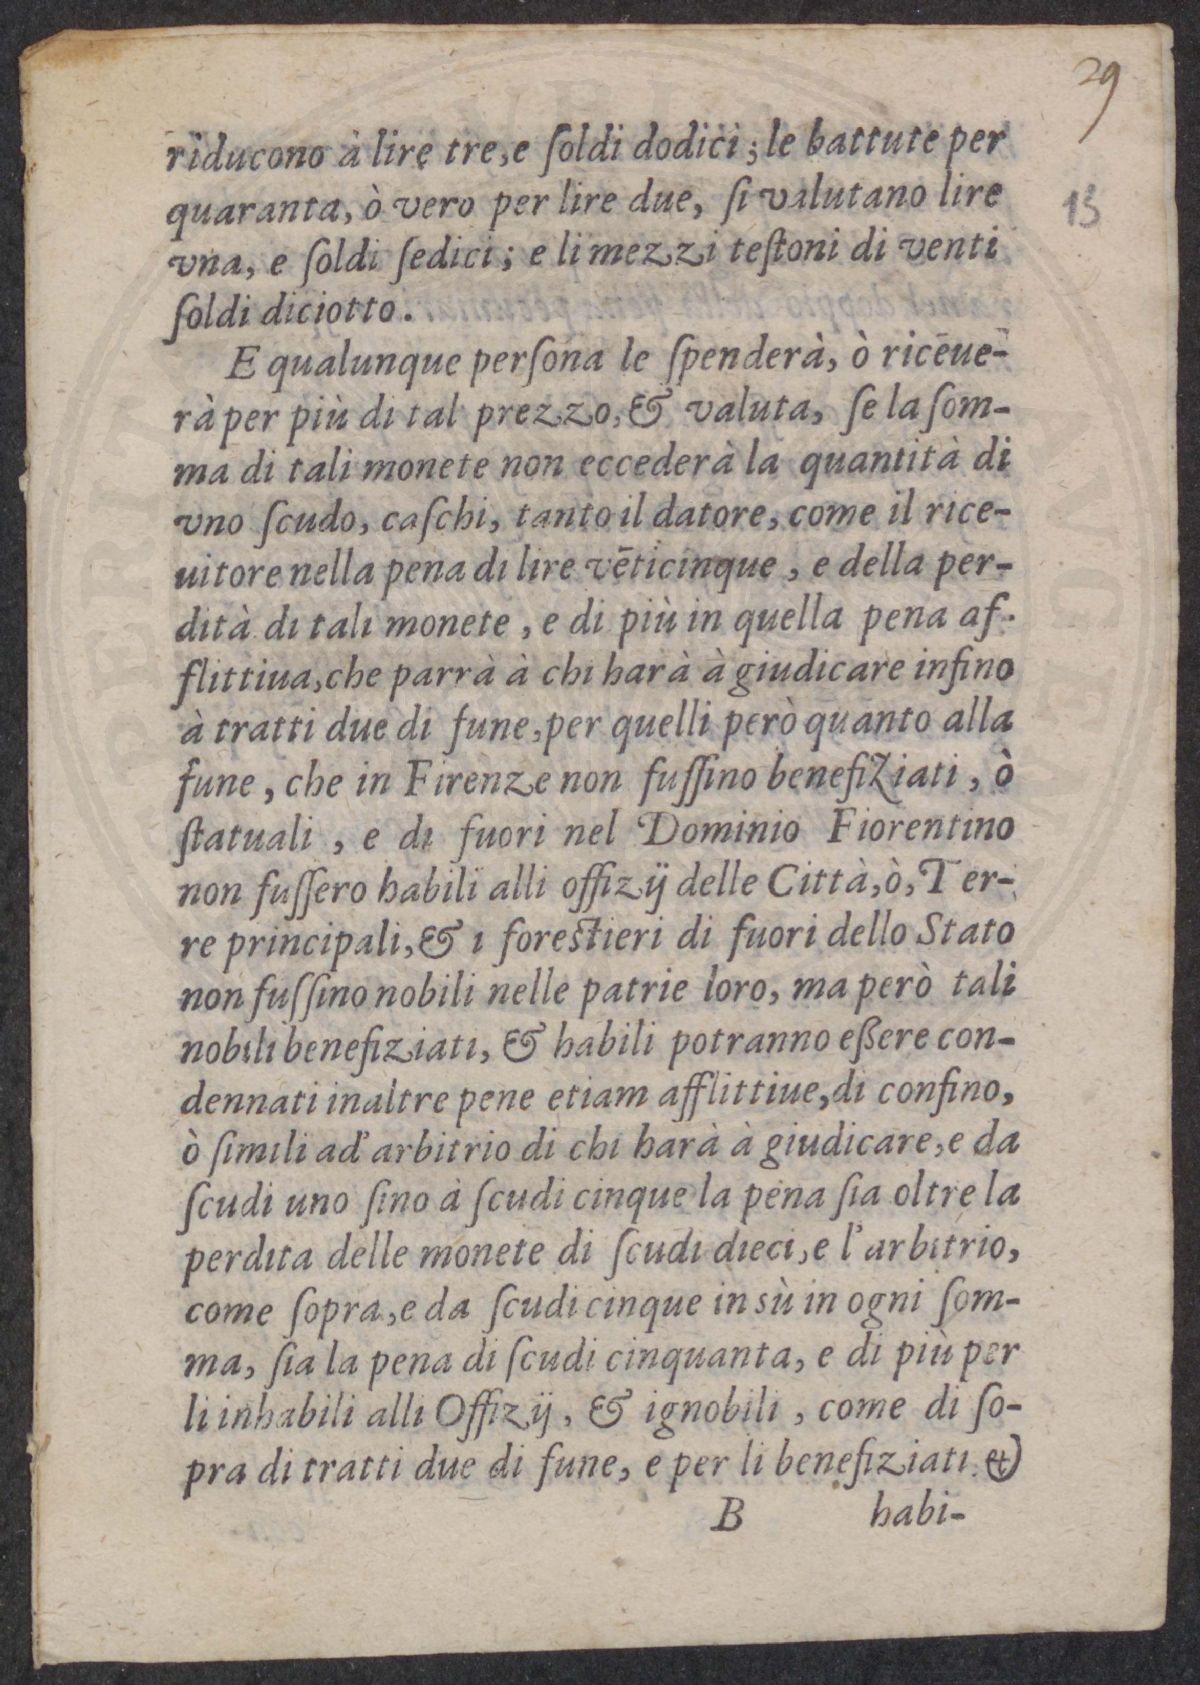 29
riducono à lire tre, e ſoldi dodici; le battute per
13
quaranta, ò vero per lire due, ſi valutano lire
vna, e ſoldi ſedici; e li mezzi teſtoni di venti
ſoldi diciotto.
E qualunque perſona le ſpenderà, ò riceue-
rà per più di tal prezzo, & valuta, ſe la ſom-
ma di tali monete non eccederà la quantità di
vno ſcudo, caſchi, tanto il datore, come il rice-
uitore nella pena di lire vēticinque, e della per-
dità di tali monete, e di più in quella pena af-
flittiua, che parrà à chi harà à giudicare infino
à tratti due di fune, per quelli però quanto alla
fune, che in Firenze non fuſſino benefiziati, ò
ſtatuali, e di fuori nel Dominio Fiorentino
non fuſſero habili alli offizÿ delle Città, ò, Ter-
re principali, & i foreſtieri di fuori dello Stato
non fuſſino nobili nelle patrie loro, ma però tali
nobili benefiziati, & habili potranno eßere con-
dennati in altre pene etiam afflittiue, di confino,
ò ſimili ad' arbitrio di chi harà à giudicare, e da
ſcudi uno ſino à ſcudi cinque la pena ſia oltre la
perdita delle monete di ſcudi dieci, e l'arbitrio,
come ſopra, e da ſcudi cinque in sù in ogni ſom-
ma, ſia la pena di ſcudi cinquanta, e di più per
li inhabili alli Offizÿ, & ignobili, come di ſo-
pra di tratti due di fune, e per li benefiziati &
B habi-